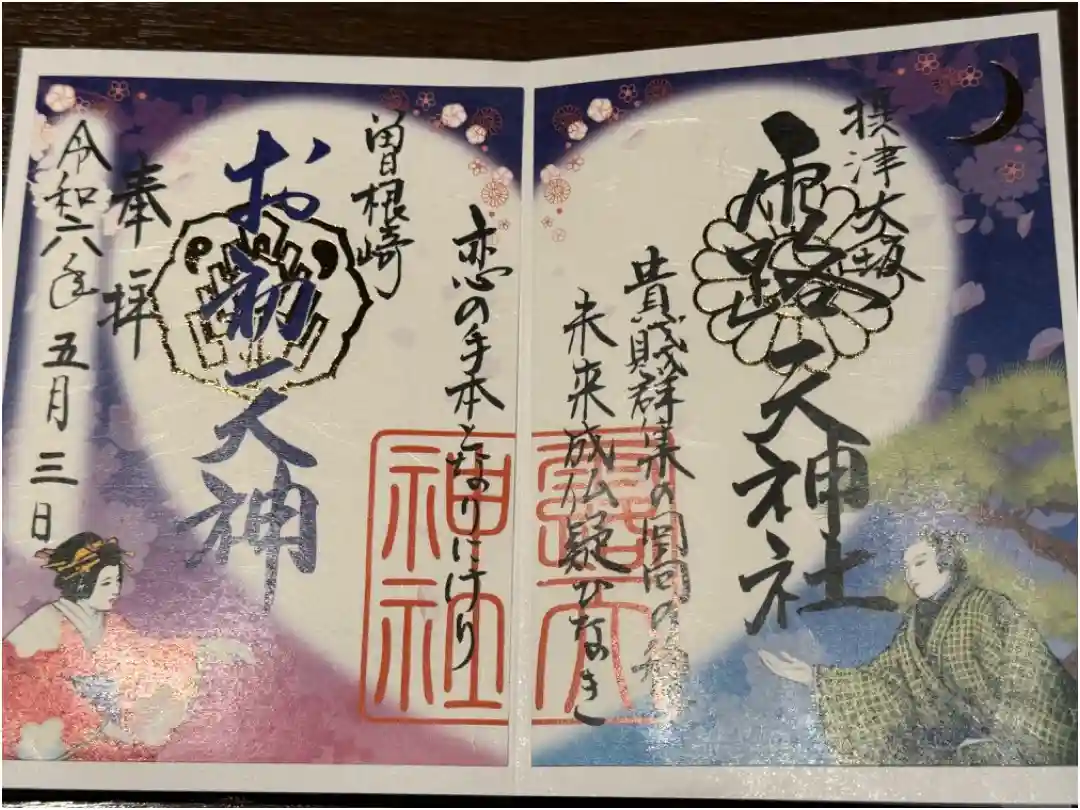 摂津大坂
露天神社
貴賤群集の回向の種
未来成仏疑ひなき
恋の手本となりにけり
曽根崎
お初天神
奉拝
令和六年五月三日
露天
神社